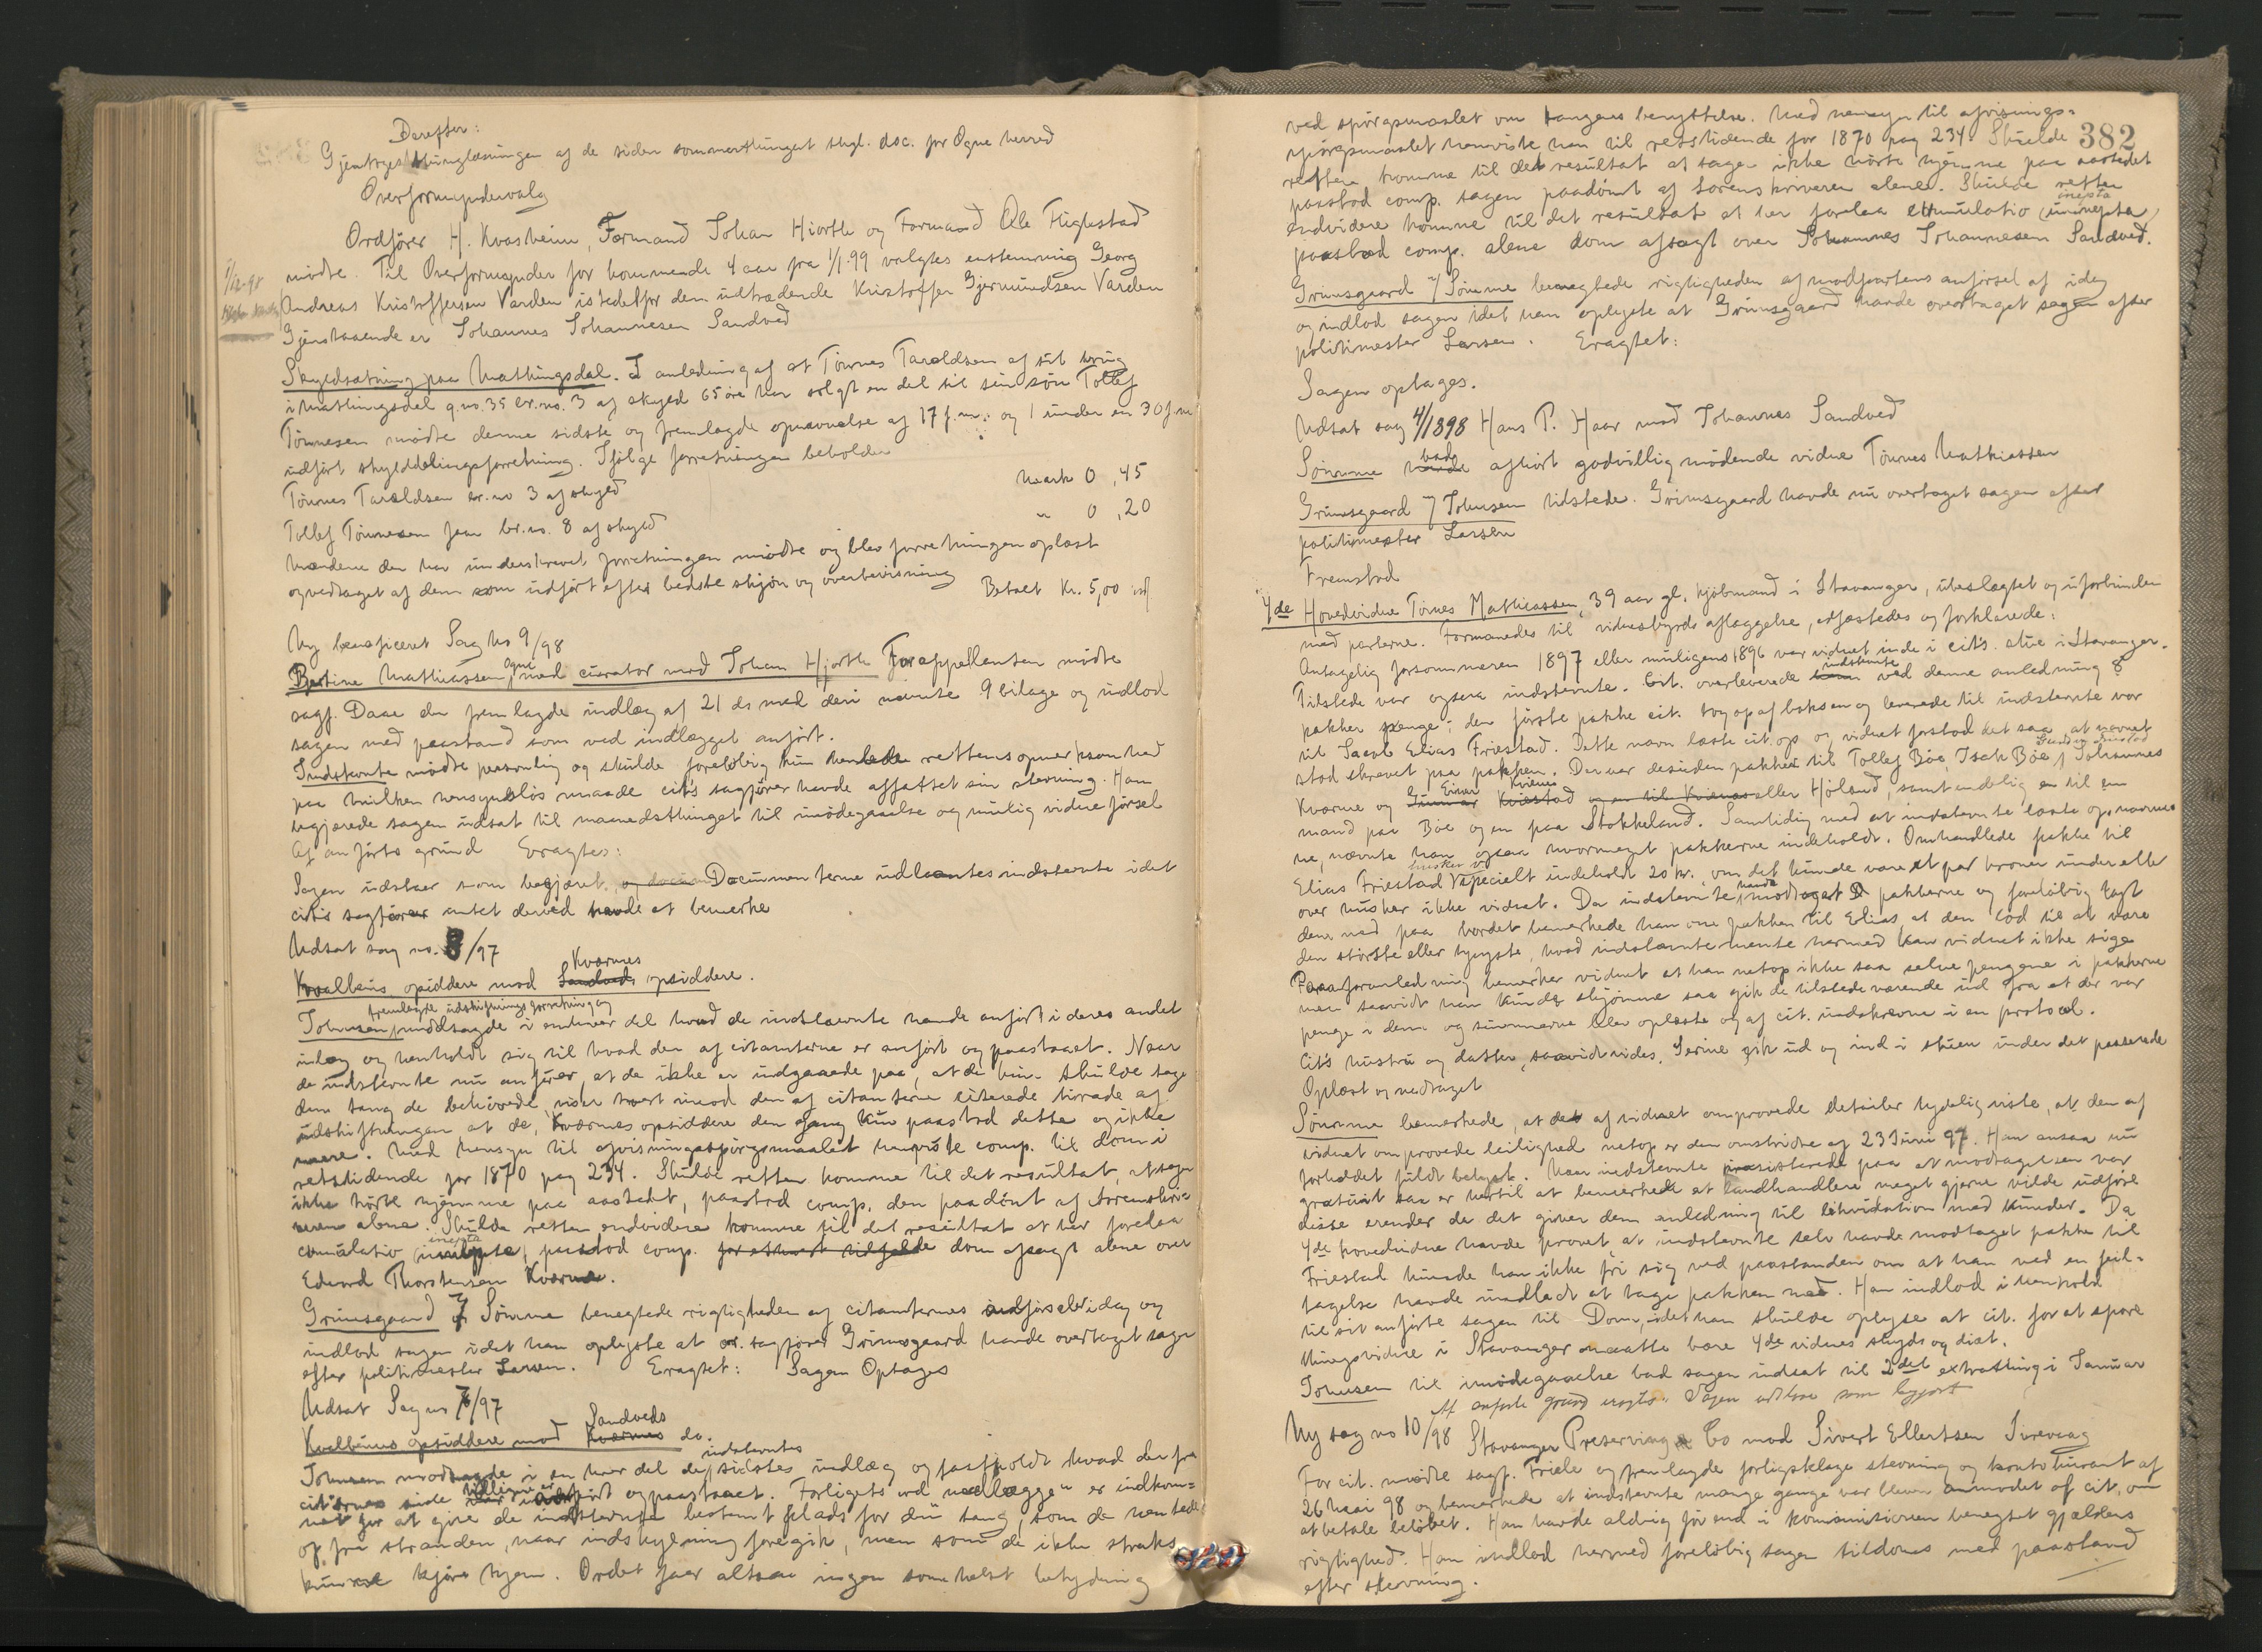 Derefter:
Gjentages thinglæsningen af de siden sommerthinget thgl. doc. for Ogne herred
Overformyndervalg
Ordfører H. Kvasheim, Formand Johan Hiorth og Formand Ole Fuglestad
mødte. Til Overformynder for kommende 4 aar fra 1/1.99 valgtes enstemmig Georg
Andreas Kristoffersen Varden istedetfor den udtrædende Kristoffer Gjermundsen Varden
Gjenstaaende er Johannes Johannesen Sandved
Skyldsætning paa Mathingsdal. I anledning af at Tønnes Taraldsen af sit brug
i Mathingsdal g.no. 35 br.no. 3 af skyld 65 øre har solgt en del til sin søn Tollef
Tønnesen mødte denne sidste og fremlagde opnævnelse af 17 f.m. og 1 under en 30 f.m
udført skylddelingsforretning. Ifølge forretningen beholder
Tønnes Taraldsen br.no 3 af skyld Mark 0,45
Tollef Tønnesen faar br.no. 8 af skyld " 0,20
Mændene der har underskrevet forretningen mødte og blev forretningen oplæst
og vedtaget af dem som udført efter bedste skjøn og overbevisning Betalt Kr. 5,00
Ny beneficeret Sag No 9/98
Bertine Mathiassen Ogne med curator mod Johan Hjorth For appellanten mødte
sagf. Daae der fremlagde indlæg af 21 ds med deri nævnte 9 bilage og indlod
sagen med paastand som ved indlægget anført.
Indstevnte mødte personlig og skulde foreløbig kun henlede rettens opmerksomhed
paa hvilken hensynsløs maade cit's sagfører havde affattet sin stevning. Han
begjærede sagen udsat til maanedsthinget til imødegaaelse og mulig vidneførsel
Af anførte grund Eragtes:
Sagen udstaar som begjæret. og docum Documenterne udlaantes indstevnte idet
cit's sagfører intet derved havde at bemerke
Udsat sag no. 8/97
Kvalbeins opsiddere mod Sandveds Kværnes opsiddere.
Johnsen fremlagde udskiftningsforretning og modsagde i enhver del hvad de indstævnte havde anført i deres andet
indlæg og henholdt sig til hvad der af citanterne er anført og paastaaet. Naar
de indstevnte nu anfører, at de ikke er indgaaede paa, at de kun skulde tage
den tang de behøvede, viser tvert imod den af citanterne citerede tirade af
udskiftningen at de, Kværnes opsiddere den gang kun paastod dette og ikke
mere. Med hensyn til afvisningsspørgsmaalet henviste comp. til dom i
retstidende for 1870 pag 234. Skulde retten komme til det resultat, at sagen
ikke hørte hjemme paa aastedet, paastod comp. den paadømt af sorenskri-
veren alene. Skulde retten endvidere komme til det resultat at her forelaa
cumulatio inepta, paastod comp. for ethvert tilfælde dom afsagt alene over
Edvard Thorstensen Kværne.
Grimsgaard f Sømme benegtede rigtigheden af citanternes anførsel idag og
indlod sagen idet han oplyste at or. sagfører Grimsgaard havde overtaget sagen
efter politimester Larsen. Eragtet: Sagen Optages
Udsat Sag no 7/97
Kvalbeins opsiddere mod Kværnes Sandveds do.
Johnsen modsagde i en hver del de indstevntes sidstes indlæg og fastholdt hvad der fra
cit'ernes side tidligere er anført og paastaaet. Forligets ord "nedlægge" er indkom-
met for at give de indstevnte bestemt plads for den tang, som de hentede
op fra stranden, naar indskylning foregik, men som de ikke straks
kunde kjøre hjem. Ordet har altsaa ingen somhelst betydning
382
ved spørgsmaalet om tangens benyttelse. Med hensyn til afvisnings-
spørgsmaalet henviste han til retstidende for 1870 pag 234. Skulde
retten komme til det resultat at sagen ikke hørte hjemme paa aastedet
paastod comp. sagen paadømt af sorenskriveren alene. Skulde retten
endvidere komme til det resultat at her forelaa cumulatio inepta
paastod comp. alene dom afsagt over Johannes Johannesen Sandved.
Grimsgaard f Sømme benegtede rigtigheden af modpartens anførsel af idag
og indlod sagen idet han oplyste at Grimsgaard havde overtaget sagen efter
politimester Larsen. Eragtet:
Sagen optages.
Udsat sag 4/1898 Hans P. Haar mod Johannes Sandved
Sømme bad afhørt godvillig mødende vidne Tønnes Mathiassen
Grimsgaard f Johnsen tilstede. Grimsgaard havde nu overtaget sagen efter
politimester Larsen
Fremstod
4de Hovedvidne Tønnes Mathiassen, 39 aar gl. kjøbmand i Stavanger, ubeslægtet og uforbunden
med parterne. Formanedes til vidnesbyrds aflæggelse, edfæstedes og forklarede:
Antagelig forsommeren 1897 eller muligens 1896 var vidnet inde i cit's stue i Stavanger.
Tilstede var ogsaa indstevnte. Cit. overleverede indstevnte ved denne anledning 8
pakker penge; den første pakke cit. tog op af boksen og leverede til indstevnte var
til Jacob Elias Friestad. Dette navn læste cit. op og vidnet forstod det saa at navnet
stod skrevet paa pakken. Der var desuden pakker til Tollef Bøe, Isak Bøe, Johannes
Kværne og Gunnar Einar Kvernes eller Høland, samt endelig en til en
mand paa Bøe og en paa Stokkeland. Samtidig med at indstevnte læste op navne-
ne, nævnte han ogsaa hvormeget pakkerne indeholdt. Omhandlede pakke til
Elias Friestad husker v. specielt indeholdt 20 kr., om det kunde være et par kroner under eller
over husker ikke vidnet. Da indstevnte havde modtaget pakkerne og foreløbig lagt
dem ned paa bordet bemerkede han om pakken til Elias at den lod til at være
den største eller tyngste, hvad indstævnte mente hermed kan vidnet ikke sige
Paa foranledning bemerker vidnet at han netop ikke saa selve pengene i pakkerne
men saavidt han kunde skjønne saa gik de tilstedeværende ud fra at der var
penge i dem og summerne blev oplæste og af cit. indskrevne i en protocol.
Cit's hustru og datter, saavidt vides, Serine gik ud og ind i stuen under det passerede
Oplæst og vedtaget
Sømme bemerkede, at de af vidnet omprovede detailer tydelig viste, at den af
vidnet omprovede leilighed netop er den omstridte af 23 Juni 97. Han ansaa nu
forholdet fuldt belyst. Naar indstevnte insisterede paa at modtagelsen var
gratuit saa er hertil at bemerke at landhandlere meget gjerne vilde udføre
disse erender da det giver dem anledning til likvidation med kunder. Da
4de hovedvidne havde provet at indstevnte selv havde modtaget pakke til
Friestad kunde han ikke fri sig ved paastanden om at han ved en feil-
tagelse havde undladt at tage pakken med. Han indlod i henhold
til sit anførte sagen til Dom, idet han skulde oplyse at cit. for at spare
thingsvidne i Stavanger maatte bære 4de vidnes skyds og diæt.
Johnsen til imødegaaelse bad sagen udsat til 2det extrathing i Januar
Af anførte grund eragtes: Sagen udstaar som begjært
Ny sag no 10/98 Stavanger Preserving Co mod Sivert Ellertsen Sirevaag
For cit. mødte sagf. Friele og fremlagde forligsklage stevning og konto kurant af
26 Mai 98 og bemerkede at indstevnte mange gange var bleven anmodet af cit. om
at betale beløbet. Han havde aldrig før end i kommissionen benegtet gjældens
rigtighed. Han indlod hermed foreløbig sagen til doms med paastand
efter stevning.